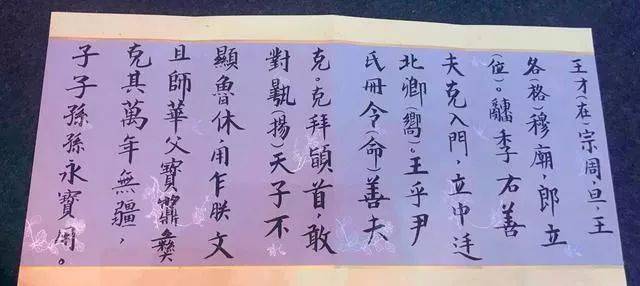 王才(在)宗周,旦,王
各(格)穆廟,郎立
(位)。𤕌季右善
夫克入門,立中廷
北卿(嚮)。王乎尹
氏冊令(命)善夫
克。克拜頴首,敢
對𩰫(揚)天子不
顯魯休,用乍朕文
且師華父寶𩰬彝
克其萬年無疆,
子子孫孫永寶用。